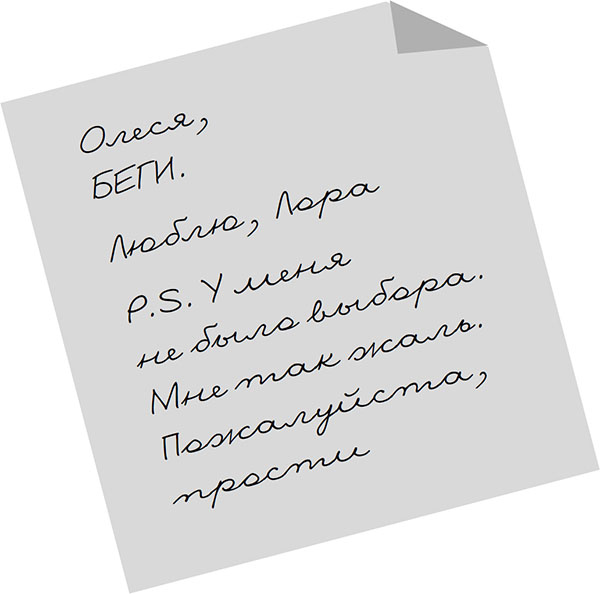 Олеся,
БЕГИ.
Люблю, Лора
P.S. У меня
не было выбора.
Мне так жаль.
Пожалуйста,
прости